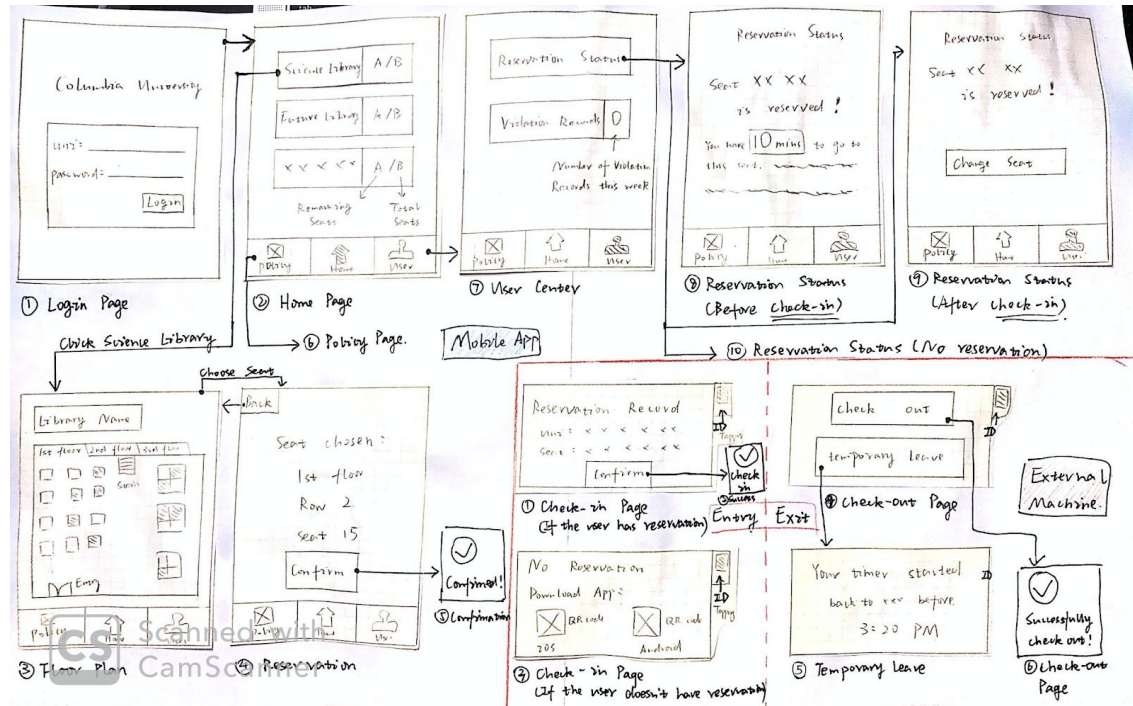 Columbia University
uni:
password:
Login
① Login Page
Science Library A/B
Future Library A/B
x x x x x A/B
Remaining Seats
Total Seats
Policy Home User
② Home Page
Reservation Status
Violation Records 0
Number of Violation
Records this week
Policy Home User
⑦ User Center
Reservation Status
Seat xx xx
is reserved!
You have 10 mins to go to
this seat.
Policy Home User
⑧ Reservation Status
(Before check-in)
Reservation Status
Seat xx xx
is reserved!
Change Seat
Policy Home User
⑨ Reservation Status
(After check-in)
Click Science Library
⑥ Policy Page.
Mobile App
⑩ Reservation Status (No reservation)
Choose Seat
Library Name
1st floor 2nd floor 3rd floor
Stairs
Policy User
③ Floor Plan
Back
Seat chosen:
1st floor
Row 2
seat 15
Confirm
Policy User
④ Reservation
Confirmed!
⑤ Confirmation
Reservation Record
uni: x x x x x x
Seat: x x x x x x
Confirm
ID
Tapping
Check
in
success
① Check-in Page
(If the user has reservation)
Entry Exit
No Reservation
Download App:
QR code QR code
iOS Android
ID
Tapping
③ Check-in Page
(If the user doesn't have reservation)
check out
temporary leave
ID
④ Check-out Page
External
Machine.
Your timer started
back to xxx before
3:20 PM
ID
⑤ Temporary Leave
Successfully
check out!
⑥ Check-out
Page
CS Scanned with
CamScanner